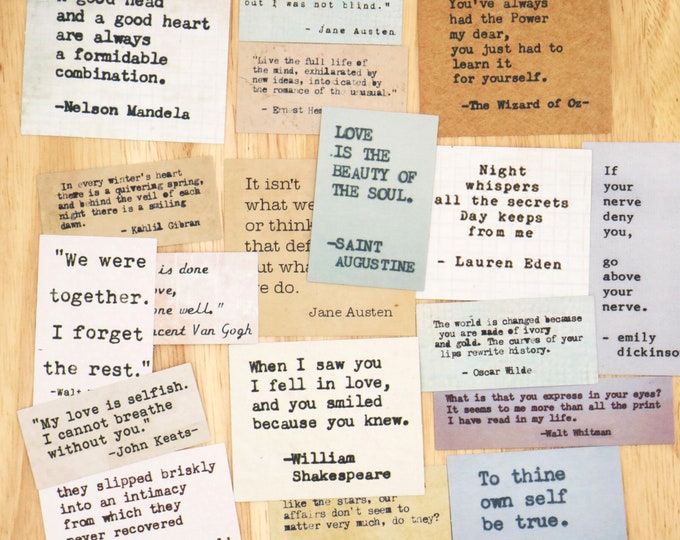 a good head
and a good heart
are always
a formidable
combination.
-Nelson Mandela
but I was not blind."
- Jane Austen
"Live the full life of
the mind, exhilarated by
new ideas, intoxicated by
the romance of the unusual."
- Ernest
You've always
had the Power
my dear,
you just had to
learn it
for yourself.
-The Wizard of Oz-
In every winter's heart
there is a quivering spring,
and behind the veil of each
night there is a smiling
dawn.
- Kahlil Gibran
It isn't
what we
or think
that
but what
we do.
Jane Austen
LOVE
IS THE
BEAUTY OF
THE SOUL.
-SAINT
AUGUSTINE
Night
whispers
all the secrets
Day keeps
from me
- Lauren Eden
If
your
nerve
deny
you,
go
above
your
nerve.
- emily
dickinson
"We were
together.
I forget
the rest."
-Walt
is done
one well."
Vincent Van Gogh
The world is changed because
you are made of ivory
and gold. The curves of your
lips rewrite history.
- Oscar Wilde
When I saw you
I fell in love,
and you smiled
because you knew.
-William
Shakespeare
What is that you express in your eyes?
It seems to me more than all the print
I have read in my life.
-Walt Whitman
"My love is selfish.
I cannot breathe
without you."
-John Keats-
they slipped briskly
into an intimacy
from which they
never recovered
like the stars, our
affairs don't seem to
matter very much, do they?
To thine
own self
be true.